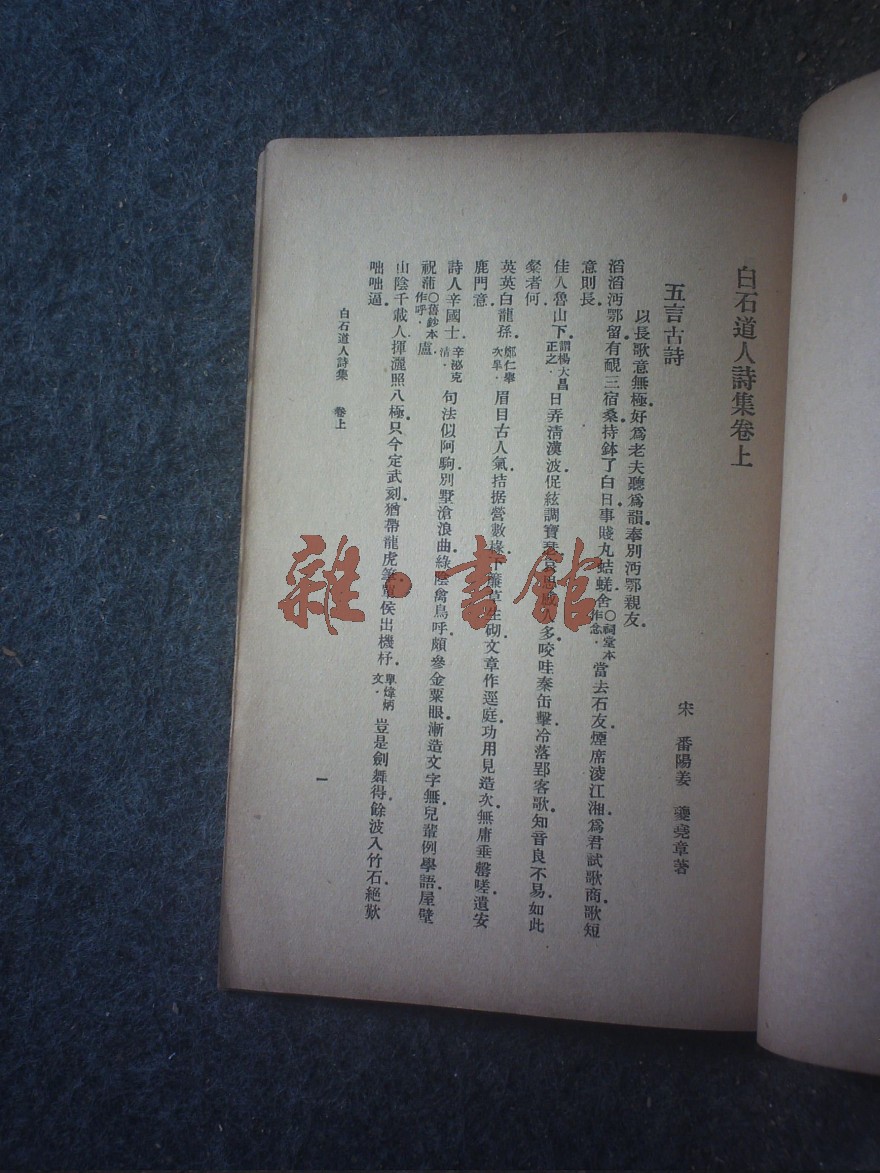 白石道人詩集卷上
宋 番陽姜 夔堯章著
五言古詩
以長歌意無極好爲老夫聽爲韻奉別沔鄂親友.
滔滔沔鄂留有靦三宿桑.持鉢了白日事賤丸蛣蜣舍〇祠堂本作念.當去石友煙席凌江湘.爲君試歌商.歌短
意則長.
佳人魯山下.謂楊大昌正之.日弄清漢波.促絃調寶瑟.哀思感人多.咬哇秦缶擊.冷落郢客歌.知音良不易.如此
粲者何.
英英白龍孫.鄭仁舉次臯.眉目古人氣.拮据營數椽.下簾草生砌.文章作逕庭.功用見造次.無庸垂罄嗟.遺安
鹿門意.
詩人辛國士.辛泌克清.句法似阿駒.別墅滄浪曲.綠陰禽鳥呼.頗參金粟眼.漸造文字無.兒輩例學語.屋壁
祝蒲〇舊鈔本作呼.盧.
山陰千載人.揮灑照八極.只今定武刻.猶帶龍虎筆.單侯出機杼.單煒炳文.豈是劍舞得.餘波入竹石.絕歎
咄咄逼.
白石道人詩集 卷上
一
雜·書館